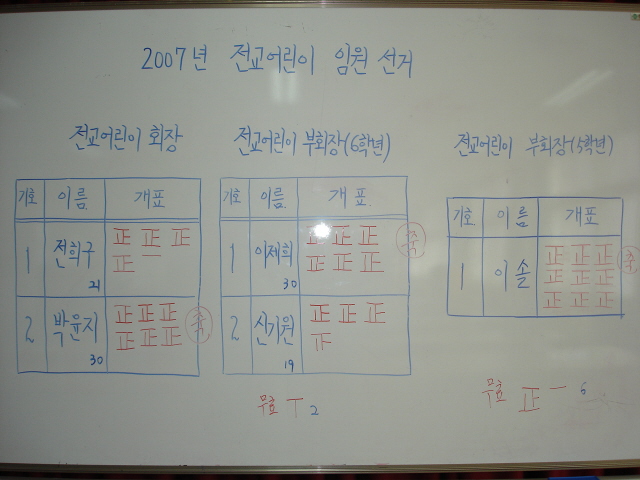 2007년 전교어린이 임원 선거
전교어린이 회장
기호 이름 개표
1 전희구 正 正 正 正 一
21
2 박윤지 正 正 正 正 正 正 축
30
전교어린이 부회장(6학년)
기호 이름 개표.
1 이제희 正 正 正 正 正 正 축
30
2 신기원 正 正 正 正
19
무효 丅 2
전교어린이 부회장(5학년)
기호 이름 개표
1 이솔 正 正 正 正 正 正 正 正 正 축
무효 正 一 6